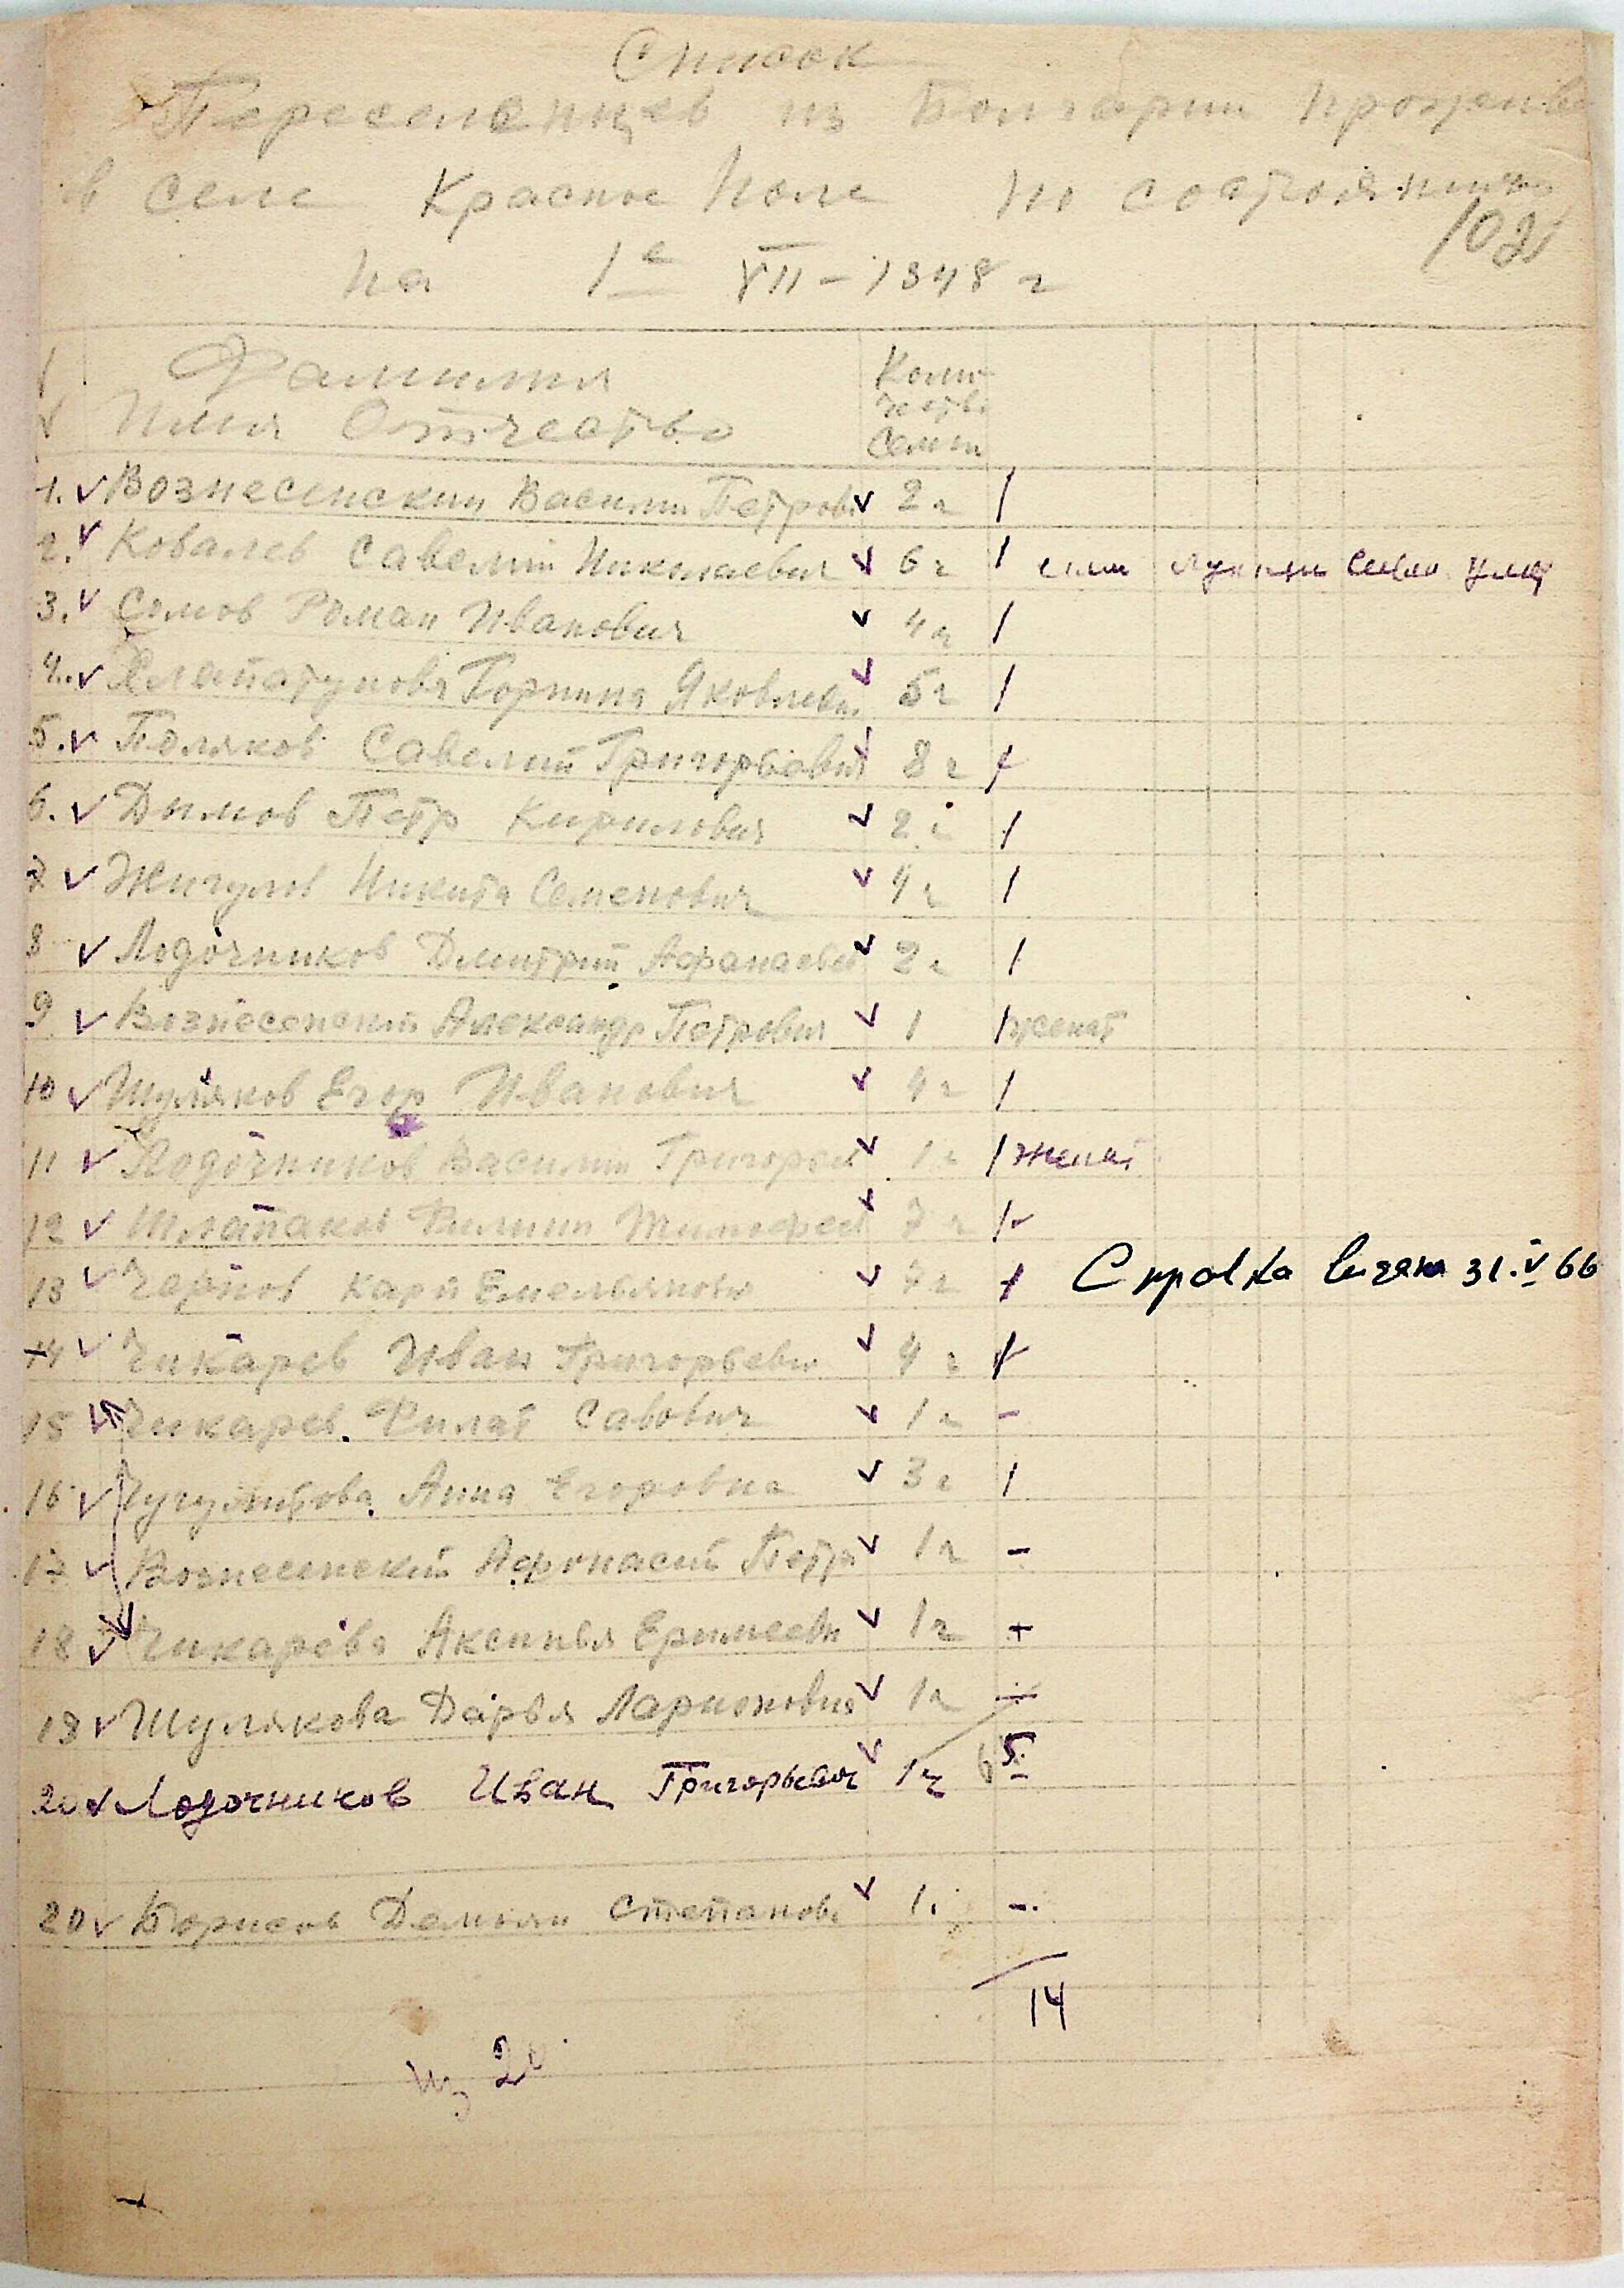 Список
Переселенцев из Болгарии прожив
в селе Красное Поле по состоянию
102
на 1е VII-1948 г
Фамилия Коли-
Имя Отчество честв
Семьи
1. Вознесенский Василий Петров 2ч /
2. Ковалев Савелий Николаевич 6ч /
3. Сомов Роман Иванович 4ч /
4. Яковлевн 5ч /
5. Поляков Савелий Григорьевич 8ч
6. Дымов Петр Кирилович 2ч /
7 Жигулов Никита Семенович 4ч /
8 Лодочников Дмитрий Афанаевич 2ч /
9 Вознесенский Александр Петрович 1 / женат
10 Шуляков Егор Иванович 4ч /
11 Лодочников Василий Григорев 1ч / женат
12 Шлапаков Филипп Тимофей 7ч /
13 Чернов Карп Емельянов 7ч Справка выдана 31.V 66
14 Чикарев Иван Григорьеви 4ч
15 Чикарев Филат Савович 1ч -
16 Анна Егоровна 3ч /
17 Вознесенский Афонасий Петр 1ч -
18 Чикарёва Аксинья Еримеевн 1ч +
19 Шулякова Дарья Ларионовна 1ч -
5
20 Лодочников Иван Григорьевич 1ч -
20 Борисов Демьян Степанов 1 -
14
из 20